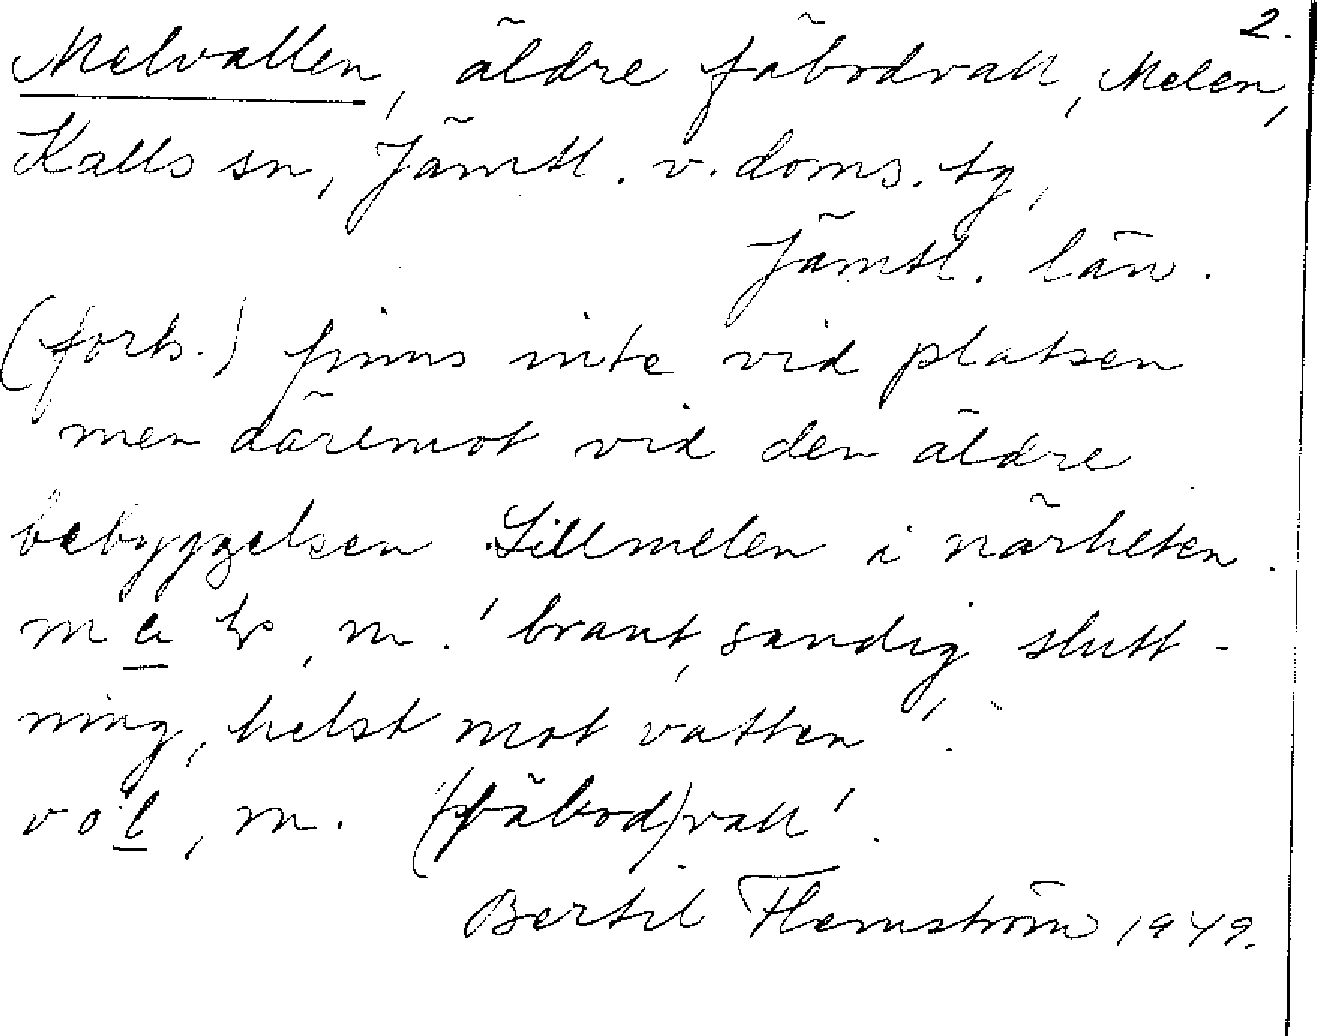 2.
Melvallen, äldre fäbodvall, Melen,
Kalls sn, Jämtl. v. doms. tg,
Jämtl. län.
(forts.) finns inte vid platsen
men däremot vid den äldre
bebyggelsen Lillmelen i närheten.
m, m. 'brant, sandig slutt-
ning, helst mot vatten'.
vol, m. '(fäbod)vall'.
Bertil Flemström 1949.